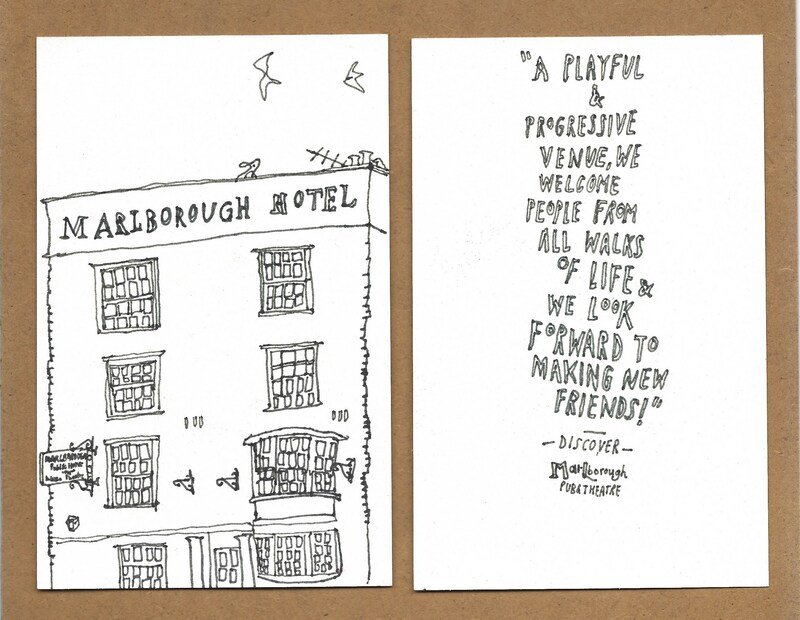 MARLBOROUGH HOTEL
MARLBOROUGH
Public House
"A PLAYFUL
&
PROGRESSIVE
VENUE, WE
WELCOME
PEOPLE FROM
ALL WALKS
OF LIFE &
WE LOOK
FORWARD TO
MAKING NEW
FRIENDS!"
- DISCOVER -
Marlborough
PUB & THEATRE